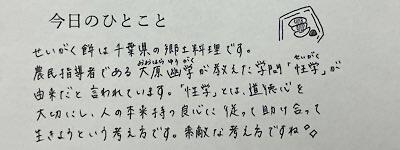 今日のひとこと
せいがく餅は千葉県の郷土料理です。
おおはら ゆうがく せいがく
農民指導者である大原幽学が教えた学問「性学」が
由来だと言われています。「性学」とは、道徳心を
大切にし、人の本来持つ良心に従って助け合って
生きようという考え方です。素敵な考え方ですね